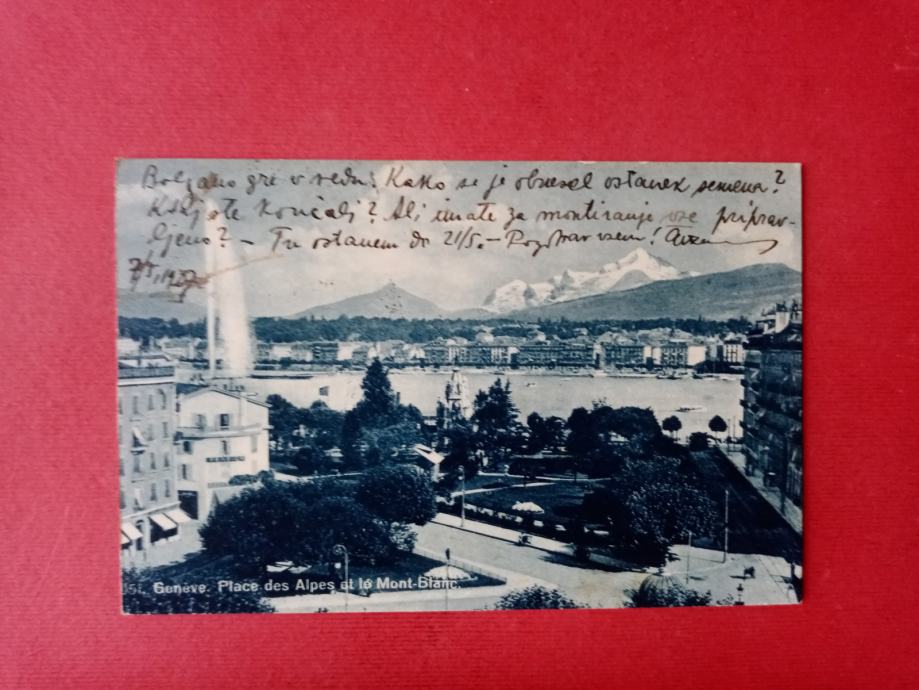 gre v redu! Kako se je obnesel ostanek semena?
Kdaj ste končali? Ali imate za montiranje vse priprav-
ljeno? – Tu ostanem do 21/5. – Pozdrav vsem!
7/5, 19
51. Genève. Place des Alpes et le Mont-Blanc.